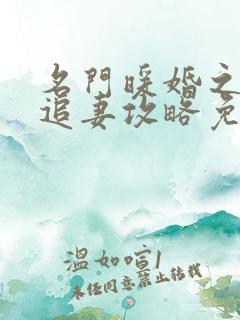 名門暖婚之
追妻攻略免
溫如喧1
未经同意禁止转载